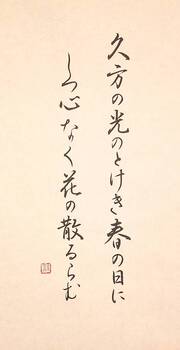 久方の光のとけき春の日に
しつ心なく花の散るらむ